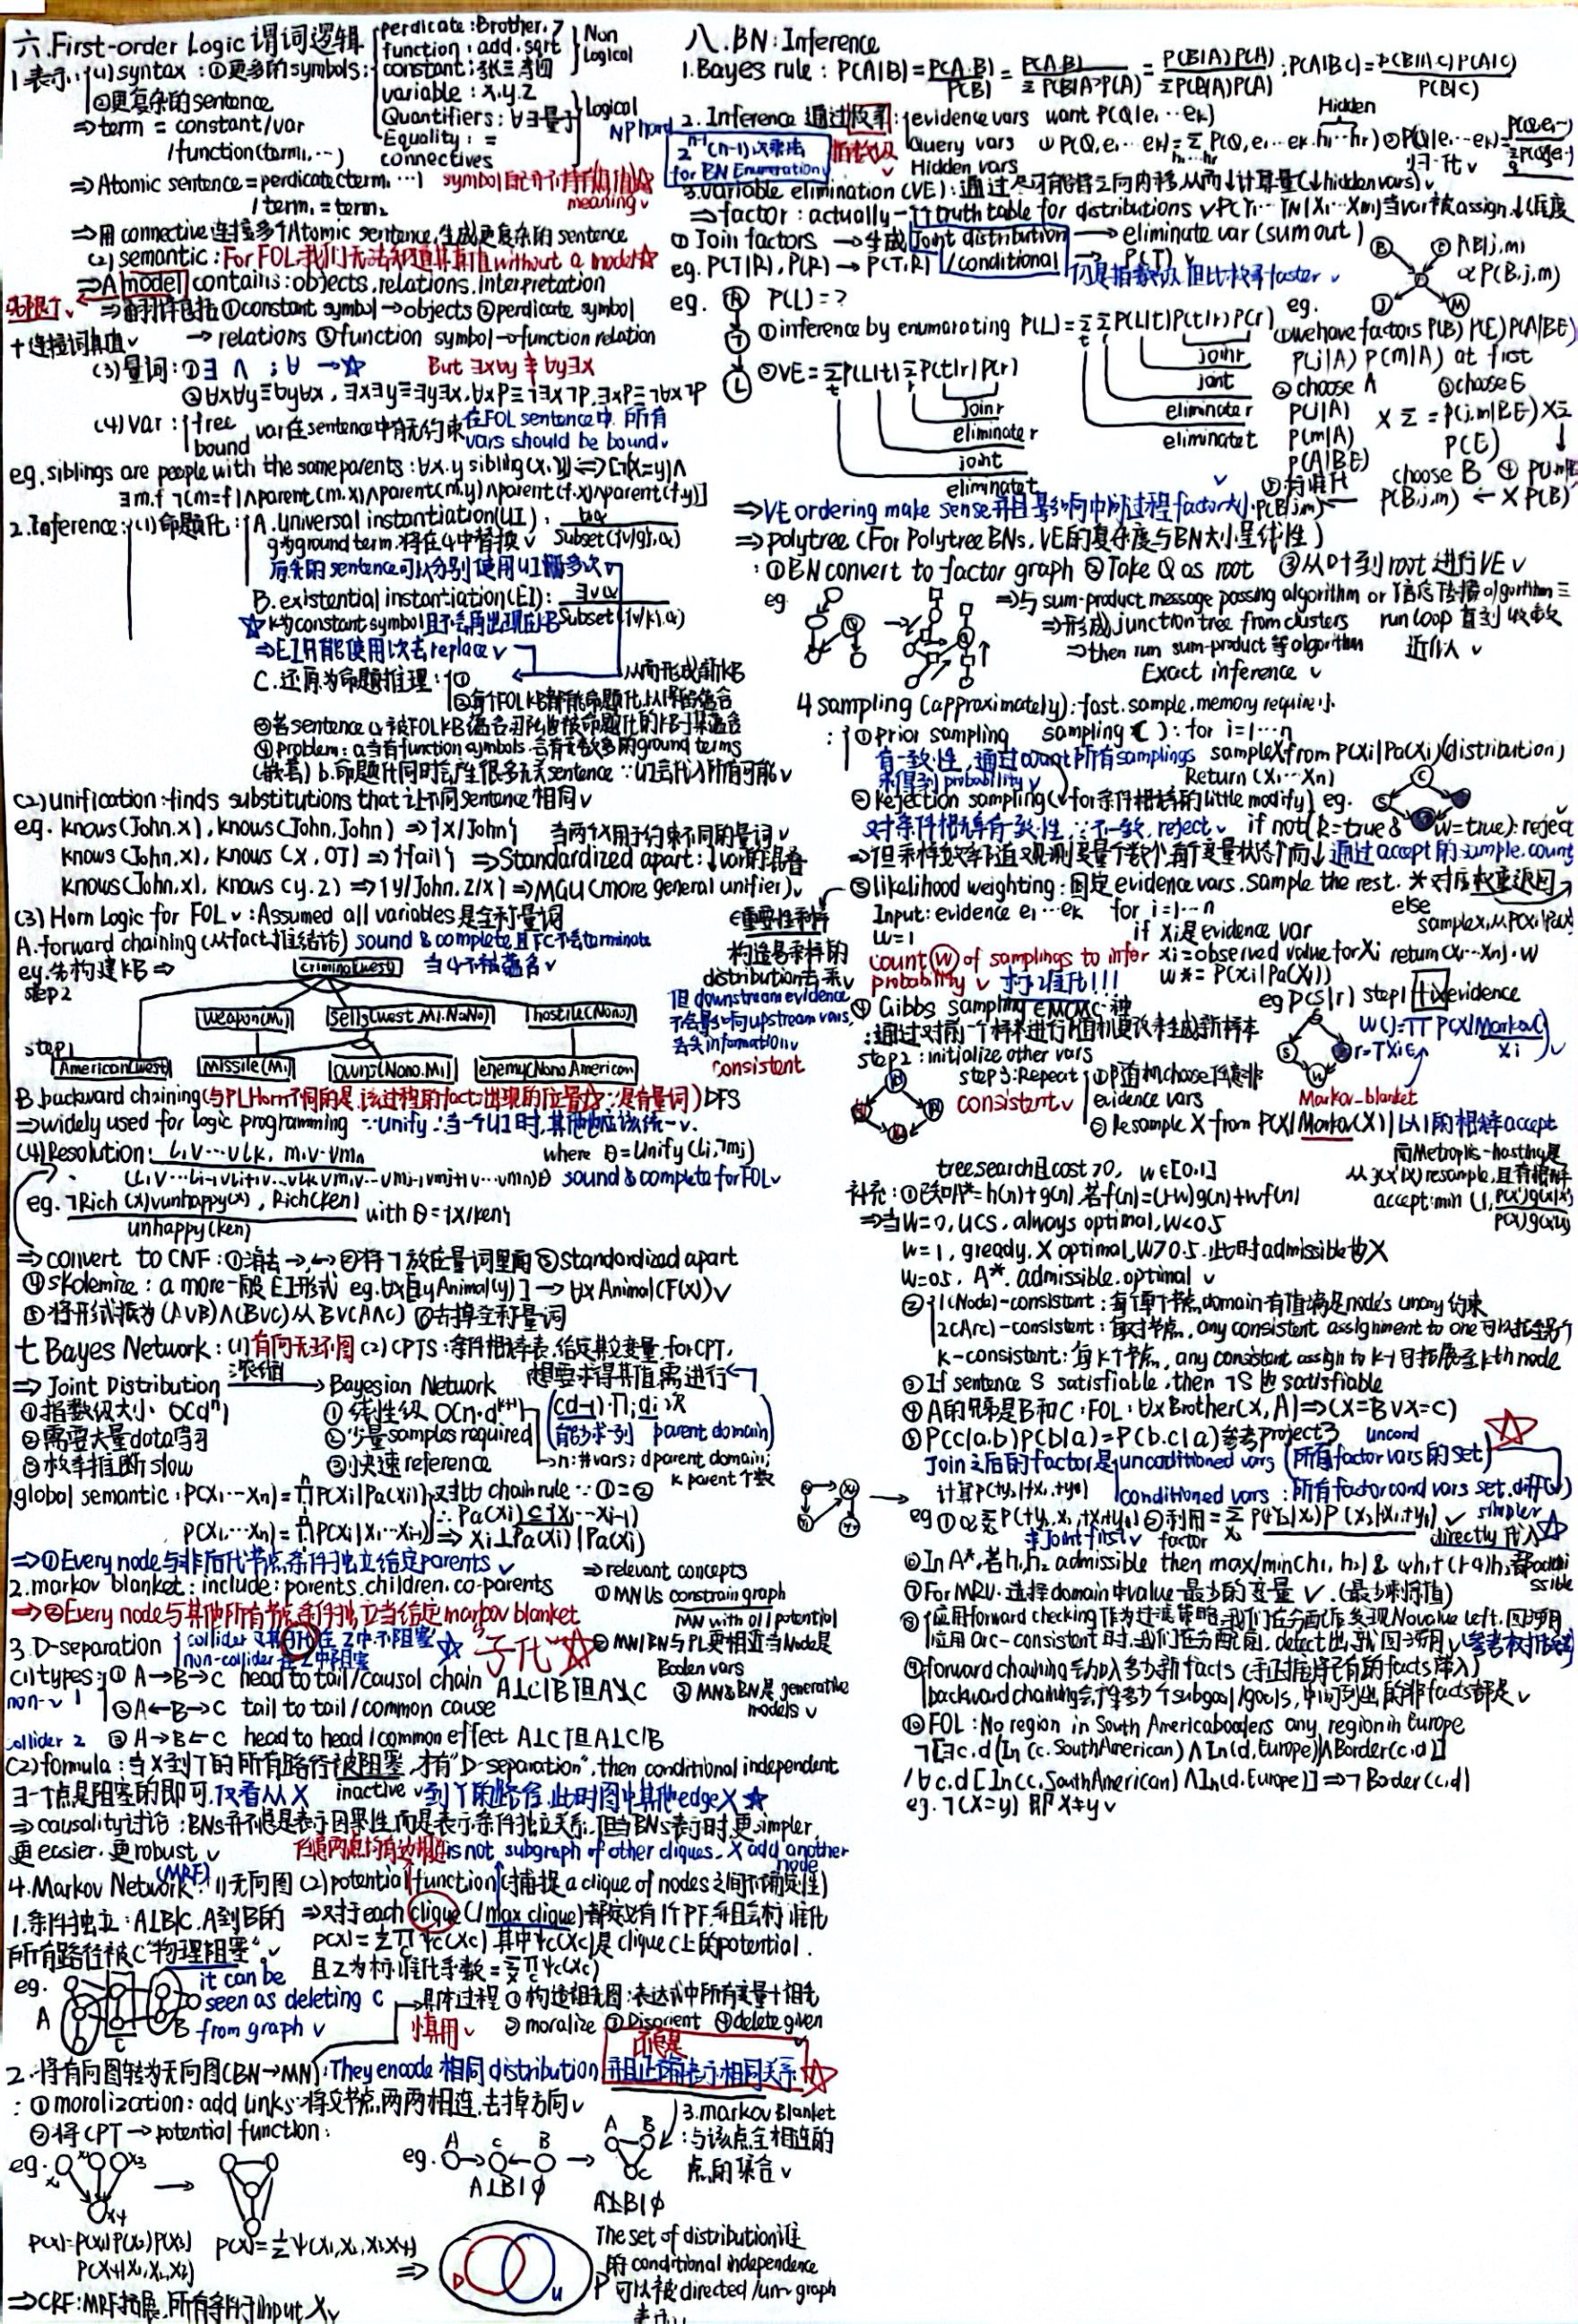 六.First-order Logic 谓词逻辑
perdicate:Brother.>
function:add.sqrt
constant:张三
variable:x.y.z
Non Logical
Quantifiers:∀∃量子
Equality: =
connectives
Logical
1表示:(1)syntax:①更多的symbols:
②更复杂的sentence
⇒term = constant/var
/function(term1,…)
⇒Atomic sentence=perdicate(term1…)
/term1=term2
meaning✓
⇒用connective连接多个Atomic sentence,生成更复杂的sentence
(2)semantic:For FOL我们无法知道其真值without a model☆
⇒A model contains:objects.relations.interpretation
①constant symbol→objects②perdicate symbol
→relations ③function symbol→function relation
十连接词真值✓
(3)量词:①∃ ∧ ; ∀ →☆ But ∃x∀y ≢ ∀y∃x
②∀x∀y≡∀y∀x, ∃x∃y≡∃y∃x,∀xP≡¬∃x¬P,∃xP≡¬∀x¬P
(4)Var: free
bound
var在sentence中有无约束
在FOL sentence中,所有
vars should be bound✓
eg.siblings are people with the same parents:∀x.y sibling(x,y)⇔[¬(x=y)∧
∃m.f ¬(m=f)∧parent(m.x)∧parent(m.y)∧parent(f.x)∧parent(f.y)]
2.Inference:(1)命题化:
A.universal instantiation(UI):
g为ground term.将在α中替换✓
Subset({v/g},α)
原来的sentence可以分别使用UI多次
B.existential instantiation(EI): ∃vα
Subset({v/k},α)
☆k为constant symbol且不会再出现在KB
⇒EI只能使用1次去replace✓
从而形成新KB
C.还原为命题推理:①
②每个FOL KB都能命题化以保留蕴含
③若sentence α被FOL KB蕴含
④problem:a.当有function symbols.会有无数多的ground terms
(嵌套) b.命题化同时会产生很多无关sentence ∵UI会代入所有可能✓
(2)unification:finds substitutions that让不同sentence相同✓
eg. knows(John.x),knows(John,John) ⇒{x/John}
当两个x用于约束不同的量词✓
knows(John,x), knows(x,OJ)⇒{fail} ⇒Standardized apart:↓var的混淆
knows(John,x), knows(y.z)⇒{y/John.z/x}⇒MGU(more general unifier)✓
(3) Horn Logic for FOL✓:Assumed all variables是全称量词
A.forward chaining(从fact推结论) sound & complete且FC不会terminate
当α不被蕴含✓
eg.先构建KB⇒
criminal(west)
step2
weapon(M1)
sells(west.M1.Nono)
hostile(Nono)
step1
American(west)
Missile(M1)
Owns(Nono.M1)
enemy(Nono American)
B.backward chaining(与PL Horn不同的是,该过程的fact出现的位置 ∵是有量词)DFS
⇒widely used for logic programming ∵unify∴当一个UI时,其他也应该统一✓
(4)Resolution: l1∨…∨lk, m1∨…∨mn
where θ=Unify(li,¬mj)
(l1∨…li-1∨li+1∨…∨lk∨m1∨…∨mj-1∨mj+1∨…∨mn)θ sound & complete for FOL✓
eg. ¬Rich(x)∨unhappy(x), Rich(ken)
unhappy(ken)
with θ={x/ken}
⇒convert to CNF:①消去→,↔②将¬放在量词里面③standardized apart
④skolemize: a more一般EI形式 eg.∀x[∃y Animal(y)]→∀x Animal(F(x))✓
⑤将形式振为(A∨B)∧(B∨C)从B∨(A∧C) ⑥去掉全称量词
七 Bayes Network:(1)有向无环图(2)CPTs:条件概率表.给定其父变量.for CPT,
想要求得其值需进行
⇒Joint Distribution 浓缩→Bayesian Network
①指数级大小 O(d^n)
①线性级 O(n·d^{k+1})
(d-1)·∏i di 次
②需要大量data学习
②少量samples required
(能少求一列 parent domain)
③枚举推断slow
③快速reference
n:#vars; d parent domain;
k parent个数
global semantic:P(X1…Xn)=∏P(Xi|Pa(Xi))对比chain rule ∵①=②
P(X1,…Xn)=∏P(Xi|X1…Xi-1)
∴Pa(Xi)⊆{X1…Xi-1}
⇒①Every node与非后代节点,条件独立给定parents✓
2.markov blanket:include:parents.children.co-parents
⇒②Every node与其他所有节点条件独立当给定markov blanket
⇒relevant concepts
①MN Vs constrain graph
MN with 0/1 potential
②MN/BN与PL更相近当Node是
Boolen vars
③MN&BN是generative
models✓
3.D-separation
non-collider在Z中阻塞
☆子代☆
(1)types:①A→B→C head to tail/causal chain
A⊥C|B但A⊥̸C
non-✓
②A←B→C tail to tail/common cause
collider 2 ③A→B←C head to head/common effect A⊥C但A⊥̸C|B
(2)formula:当X到Y的所有路径被阻塞,才有"D-separation",then conditional independent
inactive✓
∃一个点是阻塞的即可.仅看从X到Y的路径.此时图中其他edge X ☆
⇒causality讨论:BNs并不总是表示因果性而是表示条件独立关系.但当BNs表示时.更simpler,
更easier.更robust✓
任意两点均有边相连 is not subgraph of other cliques.X add another
node
4.Markov Network(MRF):(1)无向图(2)potential function(捕捉a clique of nodes之间不确定性)
1.条件独立:A⊥B|C.A到B的
所有路径被C"物理阻塞"✓
⇒对于each clique(/max clique)都定义有1个PF.并且会标准化
P(x)=1/Z ∏ψc(Xc) 其中ψc(Xc)是clique C上的potential.
且Z为标准化手数=Σ∏ψc(Xc)
eg.
A
C
B
it can be
seen as deleting C
from graph✓
具体过程①构造祖先图:表达式中所有变量+祖先
慎用✓ ②moralize ③Disorient ④delete given
2.将有向图转为无向图(BN→MN):They encode相同distribution
:①moralization:add links:将父节点两两相连.去掉方向✓
②将CPT→potential function:
eg.
x4
P(x)=P(x1)P(x2)P(x3)
P(x4|x1,x2,x3)
P(x)=1/Z ψ(x1,x2,x3,x4)
eg. A C B
A⊥B|∅
A B C
A⊥̸B|∅
3.markov Blanket
:与该点全相连的
点的集合✓
D U
The set of distribution
conditional independence
P可以被directed/un~graph
表示✓
⇒CRF:MRF拓展.所有条件于input X✓
八.BN:Inference
1.Bayes rule: P(A|B)=P(A.B)/P(B)=P(A.B)/ΣP(B|A)P(A)=P(B|A)P(A)/ΣP(B|A)P(A);P(A|BC)=P(B|A.C)P(A|C)/P(B|C)
NP hard
2.Inference通过枚举:evidence vars want P(Q|e1…ek)
Query vars ①P(Q,e1…ek)=ΣP(Q,e1…ek.h1…hr)
Hidden vars
Hidden
2^n-1(n-1)次乘法
for BN Enumeration
指数级
3.variable elimination(VE):通过尽可能将Σ向内移从而↓计算量(↓hidden vars)✓
⇒factor:actually一个truth table for distributions ✓P(Y1…YN|X1…XM)当var被assign.↓维度
①Join factors →生成Joint distribution/conditional
→eliminate var(sum out)
eg.P(T|R),P(R)→P(T,R) → P(T)✓
仍是指数级但比枚举faster✓
B E P(B|j,m)
∝P(B.j,m)
J M
eg. R T L P(L)=?
①inference by enumarating P(L)=ΣΣP(L|t)P(t|r)P(r)
join r
joint
eliminate r
eliminate t
②VE=ΣP(L|t)ΣP(t|r)P(r)
join r
eliminate r
joint
eliminate t
eg.
①we have factors P(B)P(E)P(A|BE)
P(J|A) P(m|A) at first
②choose A
P(J|A)
P(m|A)
P(A|BE)
X Σ = P(j,m|BE)
③choose E
XΣ
P(E)
choose B
X P(B)
P(B.j,m)
⇒VE ordering make sense并且影响中间过程factor大小
⇒polytree(For Polytree BNs,VE的复杂度与BN大小呈线性)
:①BN convert to factor graph ②Take Q as root ③从叶到root进行VE✓
eg
⇒与sum-product message passing algorithm or 信念传播algorithm三
⇒形成junction tree from clusters
run loop直到收敛
⇒then run sum-product等algorithm
近似✓
Exact inference✓
4 sampling(approximately):fast.sample,memory require↓.
:①prior sampling sampling():for i=1…n
有一致性,通过count所有samplings
来得到probability✓
sample Xi from P(Xi|Pa(Xi))(distribution)
Return(X1…Xn)
C
S
②Rejection sampling(✓for条件概率的little modify) eg.
对条件概率有一致性.∵不一致,reject✓
if not(R=true & W=true):reject
通过accept的sample.count
③likelihood weighting:固定evidence vars.Sample the rest.*对应权重返回
Input:evidence e1…ek
W=1
for i=1…n
if Xi是evidence var
xi=observed value for Xi
w*=P(xi|Pa(Xi))
else
return(X1…Xn).W
count(W)of samplings to infer
probability✓ 标准化!!!
∈重要性采样
构造易采样的
distribution去采✓
但downstream evidence
不会影响upstream vars,
丢失infomation✓
consistent
④Gibbs sampling∈MCMC一种
:通过对前一个样本进行随机更改来生成新样本
eg P(S|r) step1 fix evidence
r=T
Markov-blanket
step2:initialize other vars
step3:Repeat
①随机choose任意非
evidence vars
consistent✓
②Resample X from P(X|Markov(X))以1的概率accept
而Metroplis-hasting是
从g(x'|x)resample,且有概率
accept:min(1,P(x')g(x|x')/P(x)g(x'|x))
tree search且cost>0, w∈[0.1]
补充:①已知A*=h(n)+g(n),若f(n)=(1-w)g(n)+wf(n)
⇒当W=0,UCS.always optimal,W<0.5
W=1, gready,X optimal,W>0.5.此时admissible也X
W=0.5. A*.admissible.optimal✓
②1(Node)-consistent:每个单个节点domain有值满足node's unary约束
2(Arc)-consistent:每对节点,any consistent assignment to one可以拓至另个
K-consistent:每K个节点,any consistent assign to k-1可拓展至kth node
③If sentence S satisfiable,then ¬S也satisfiable
④A的兄弟是B和C:FOL:∀x Brother(x,A)⇒(x=B∨x=C)
⑤P(c|a.b)P(b|a)=P(b.c|a)参考project3
Join之后的factor是
unconditioned vars(所有factor uncond vars的set)
conditioned vars:所有factor cond vars set.diff()
☆
计算P(y2|+x1,+y1)
simpler
directly代入☆
先Joint first✓ factor
⑥In A*,若h1,h2 admissible then max/min(h1,h2) & αh1+(1-α)h2都admissible
⑦For MRV.选择domain中value最少的变量✓.(最少剩余值)
⑧应用forward checking作为过滤策略,我们在分配后发现No value left.回溯
应用arc-consistent时,我们在分配前,detect出
⑨forward chaining会加入多少新facts
backward chaining会产生多少个subgoal/goals,中间列出的非facts都是✓
⑩FOL:No region in South America boaders any region in Europe
¬[∃c.d(In(c.SouthAmerican)∧In(d,Europe))∧Border(c,d)]
/∀c.d[In(c.SouthAmerican)∧In(d.Europe)]⇒¬Boder(c,d)
eg.¬(x=y)即x≠y✓